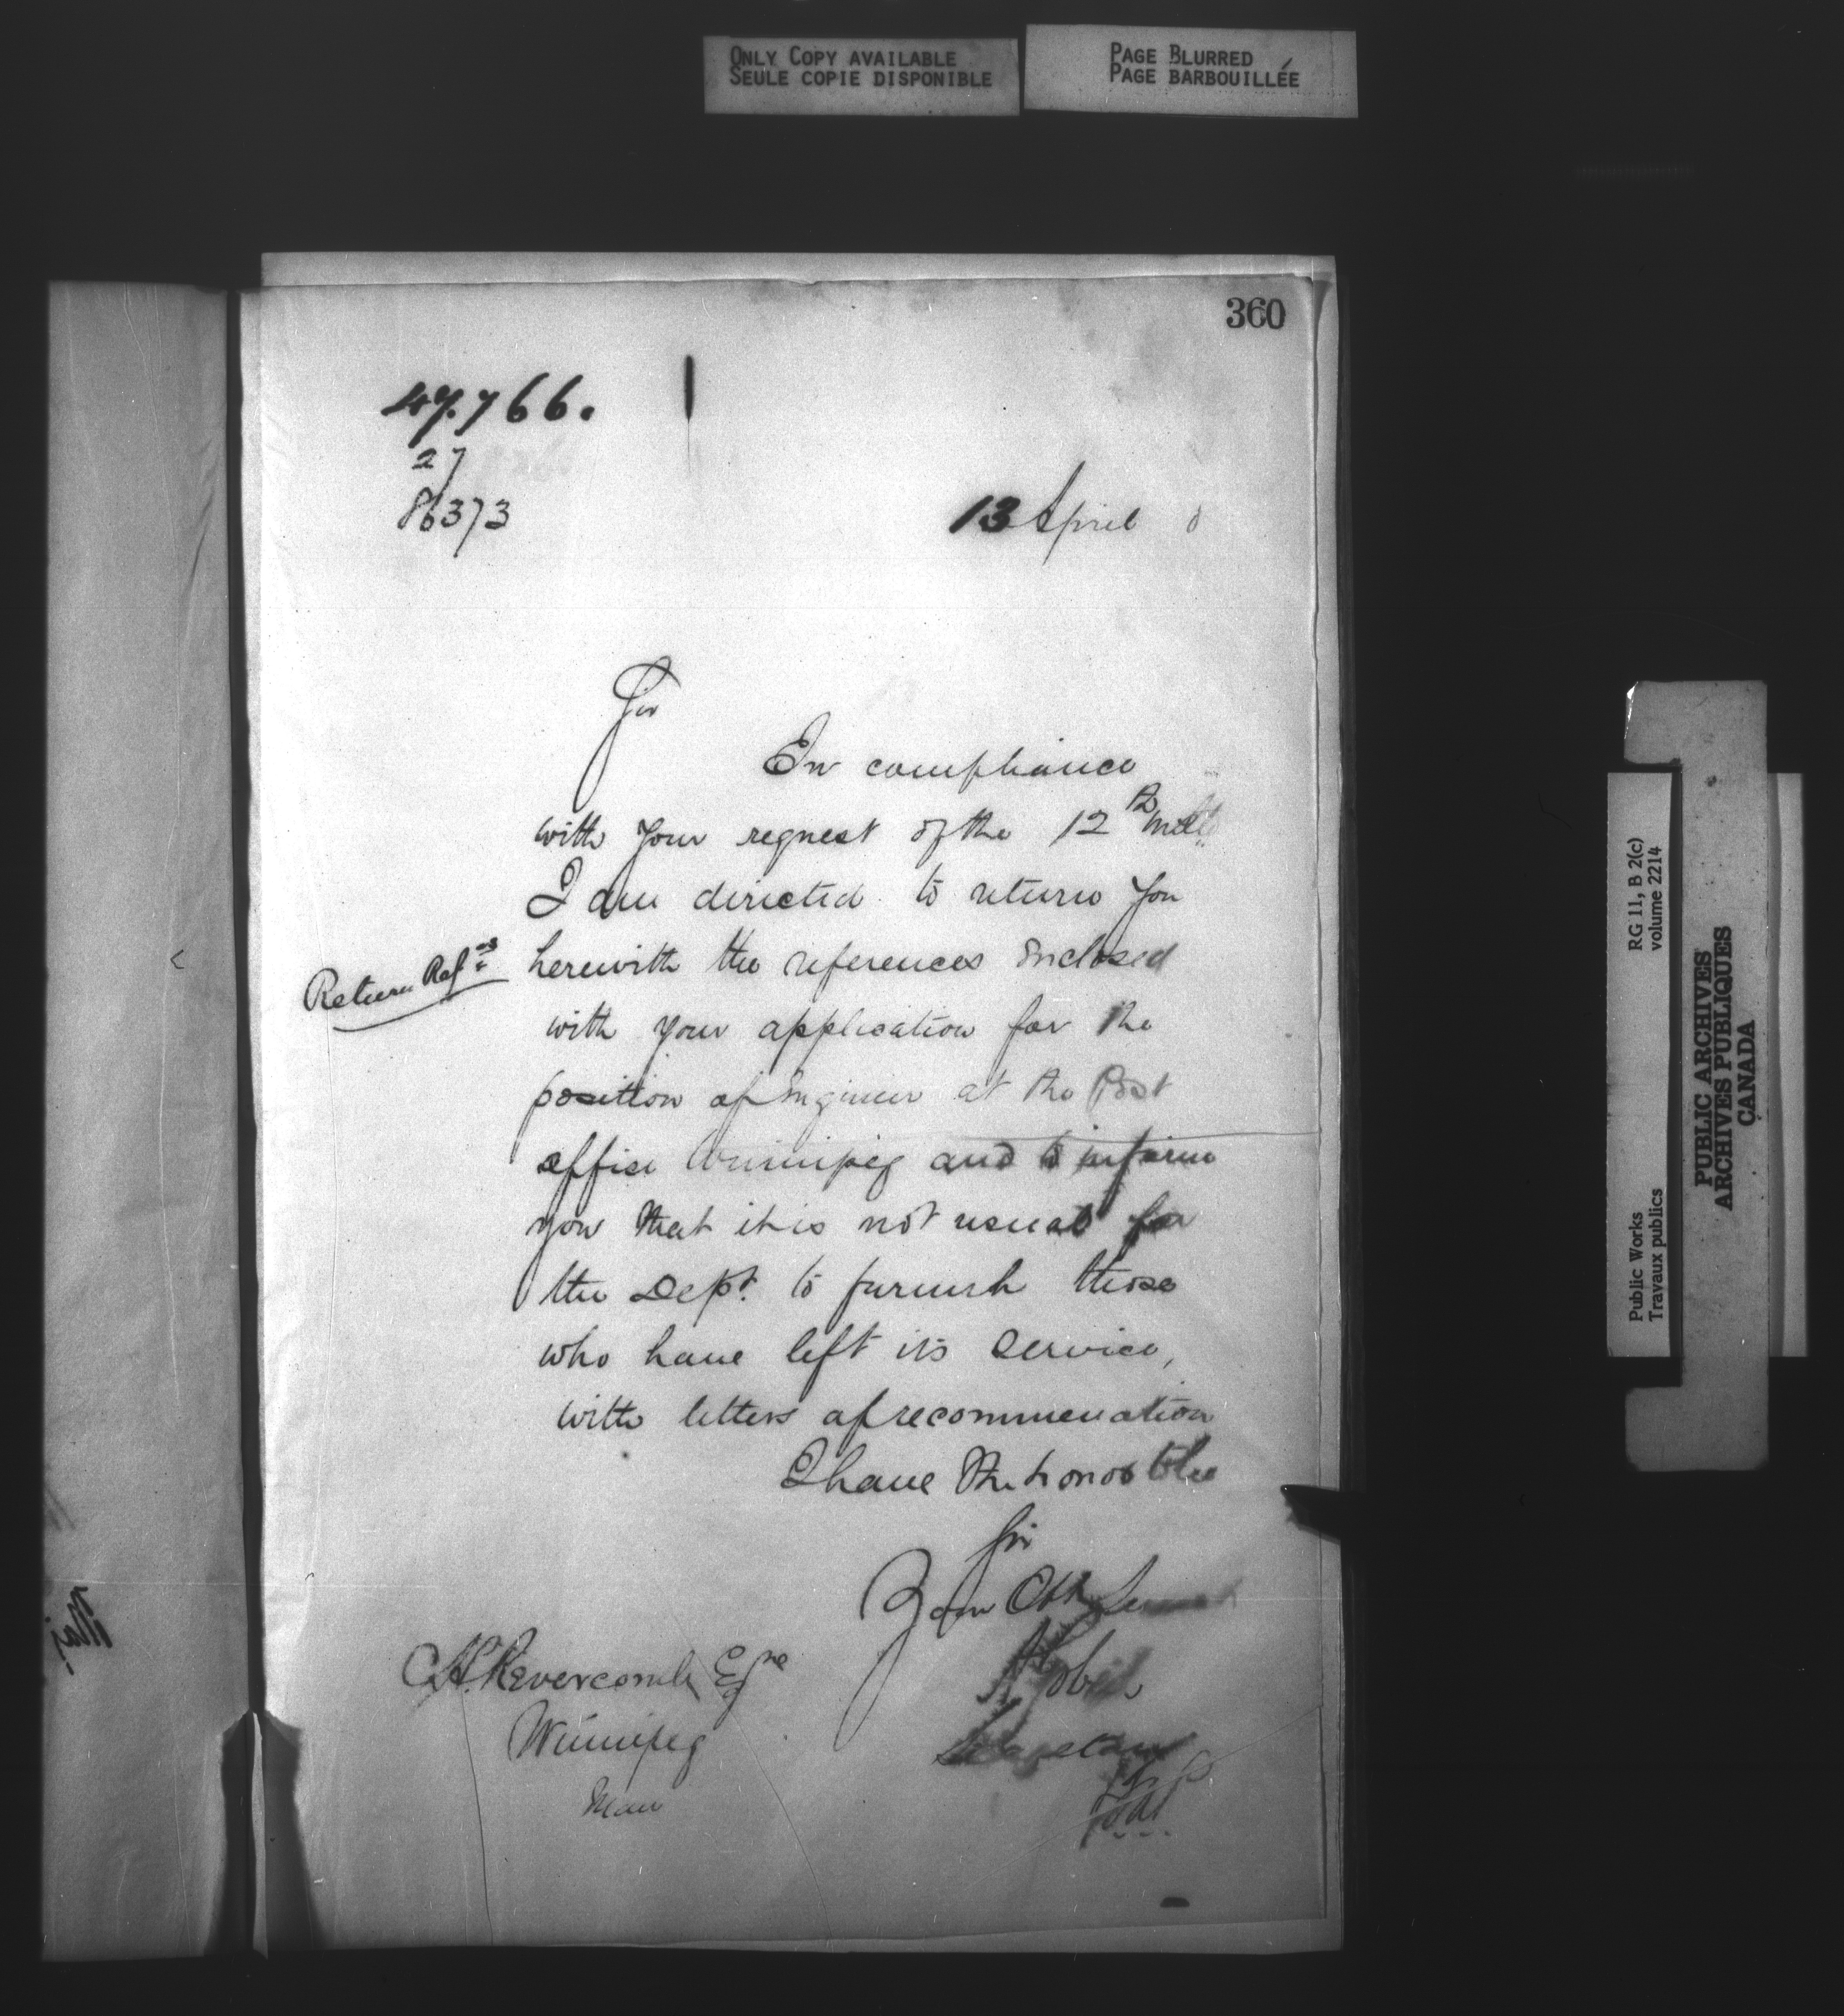 ONLY COPY AVAILABLE
SEULE COPIE DISPONIBLE
PAGE BLURRED
PAGE BARBOUILLÉE
360
47.766.
27
86373
13 April 8
Sir
In compliance
with your request of the 12th
I am directed to return you
Return Refces
herewith the references enclosed
with your application for the
position of Engineer at the Post
office Winnipeg and to inform
you that it is not usual for
the Dept. to furnish those
who have left its service,
with letters of recommenation
I have the honor to be
Sir
Your Obt Servant
Gobeil
Secretary
C.H. Revercomb Esqre
Winnipeg
Man
RG 11, B 2(c)
volume 2214
Public Works
Travaux publics
PUBLIC ARCHIVES
ARCHIVES PUBLIQUES
CANADA